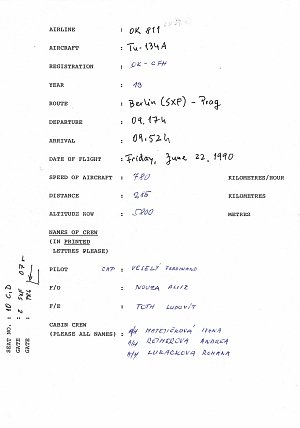 AIRLINE : OK 811
AIRCRAFT : Tu-134A
REGISTRATION : OK-CFH
YEAR : 19
ROUTE : Berlin (SXF) - Prag
DEPARTURE : 09.17h
ARRIVAL : 09.52h
DATE OF FLIGHT : Friday, June 22, 1990
SPEED OF AIRCRAFT : 780 KILOMETRES/HOUR
DISTANCE : 215 KILOMETRES
ALTITUDE NOW : 5800 METRES
NAMES OF CREW
(IN PRINTED
LETTERS PLEASE)
PILOT CAPT : VESELÝ FERDINAND
F/O : NOUZA ALIZ
F/E : TOTH LUDOVÍT
CABIN CREW : A/H MATEJÍČKOVÁ IVONA
(PLEASE ALL NAMES) : A/H REIHEROVÁ ANDREA
A/H LUKÁČKOVÁ ROMANA
SEAT NO. : 10 C,D
GATE : 2 SXF
GATE : PRG 07